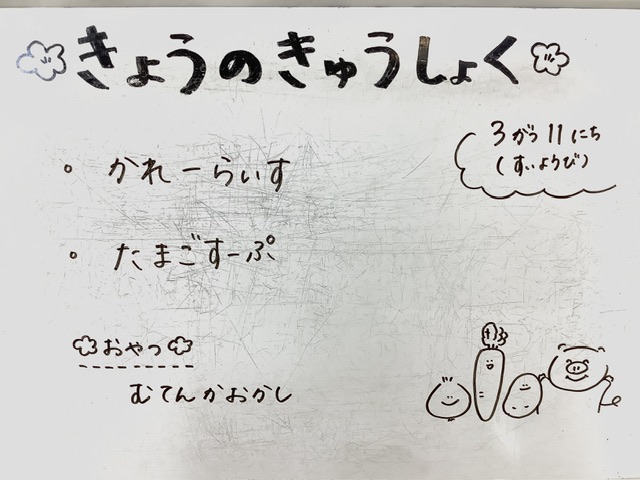 きょうのきゅうしょく
3がつ11にち
(すいようび)
・かれーらいす
・たまごすーぷ
おやつ
むてんかおかし